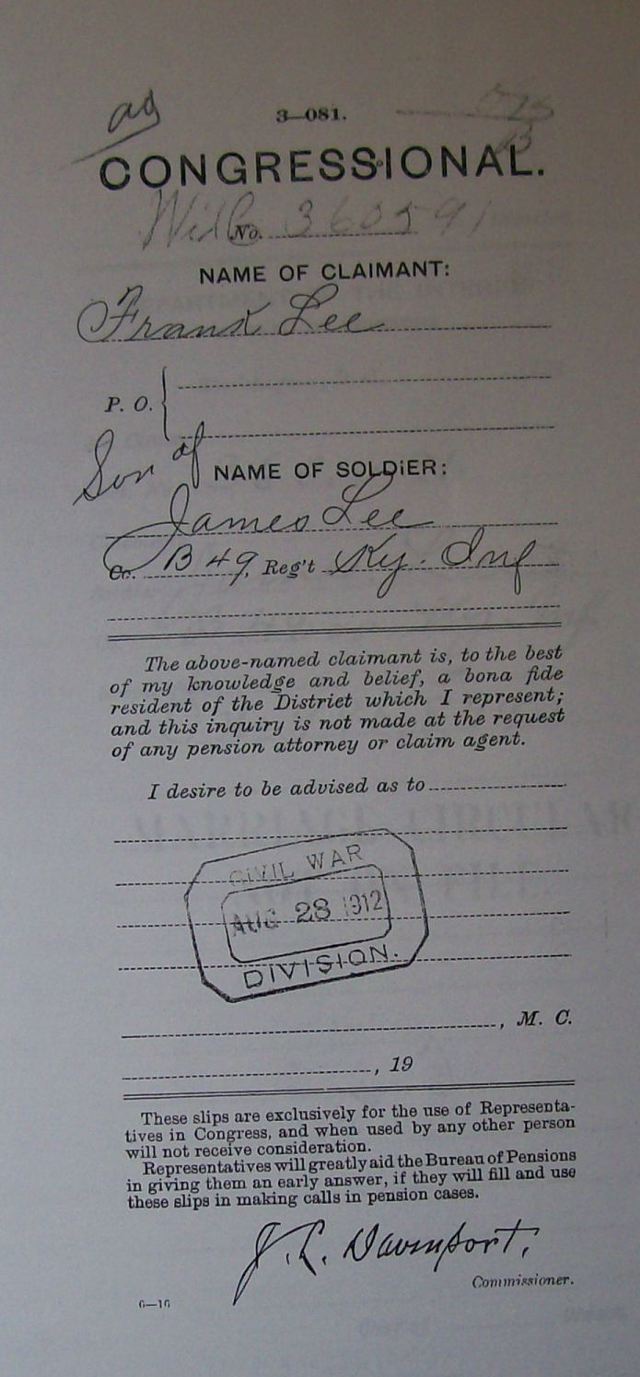 ag
3—081.
B
CONGRESSIONAL.
No. 360591
NAME OF CLAIMANT:
Frank Lee
P. O.
Son of
NAME OF SOLDIER:
James Lee
Co. B 49, Reg't Ky. Inf
The above-named claimant is, to the best
of my knowledge and belief, a bona fide
resident of the District which I represent;
and this inquiry is not made at the request
of any pension attorney or claim agent.
I desire to be advised as to
CIVIL WAR
AUG 28 1912
DIVISION.
, M. C.
, 19
These slips are exclusively for the use of Representa-
tives in Congress, and when used by any other person
will not receive consideration.
Representatives will greatly aid the Bureau of Pensions
in giving them an early answer, if they will fill and use
these slips in making calls in pension cases.
J. L. Davenport,
Commissioner.